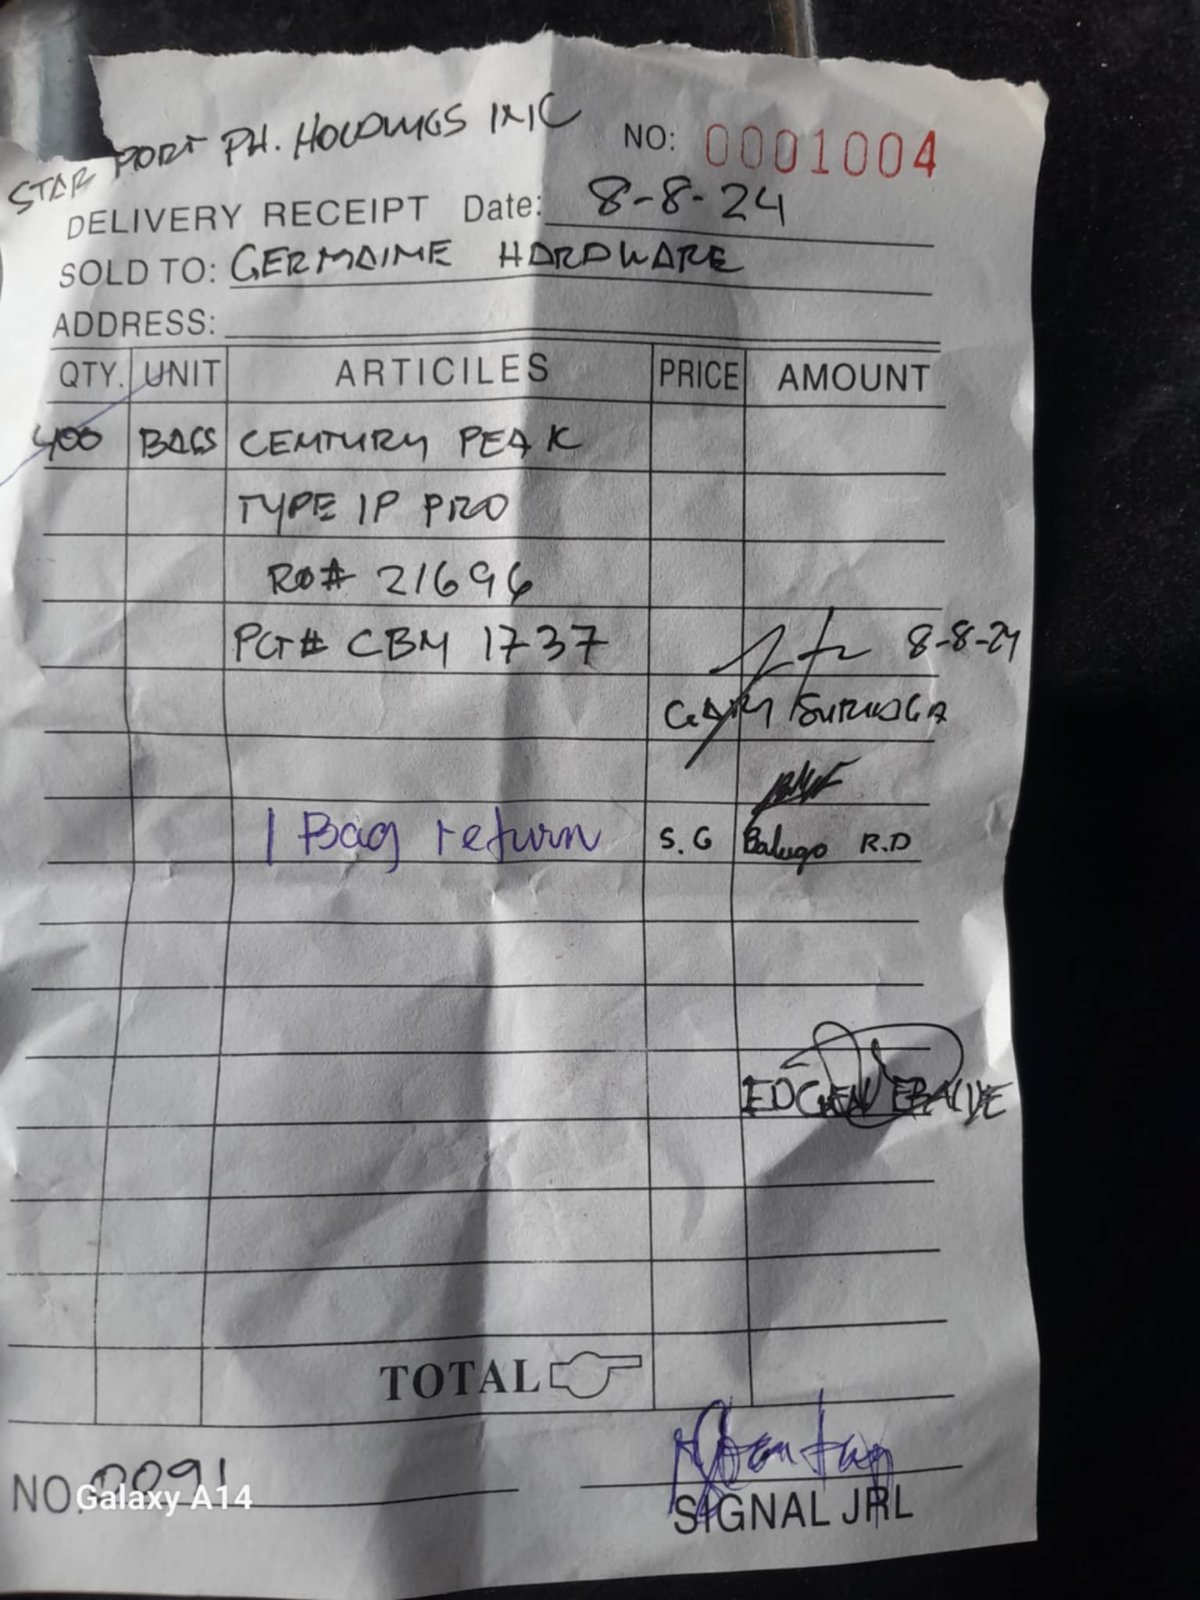 STAR PORT PH. HOLDINGS INC
NO: 0001004
DELIVERY RECEIPT Date: 8-8-24
SOLD TO: GERMAINE HARDWARE
ADDRESS:
QTY. UNIT ARTICILES PRICE AMOUNT
400 BAGS CENTURY PEAK
TYPE 1P PRO
RO# 21696
PLT# CBM 1737
8-8-24
GARY
1 Bag return S.G Balugo R.D
TOTAL
NO. 0091
SIGNAL JRL
Galaxy A14